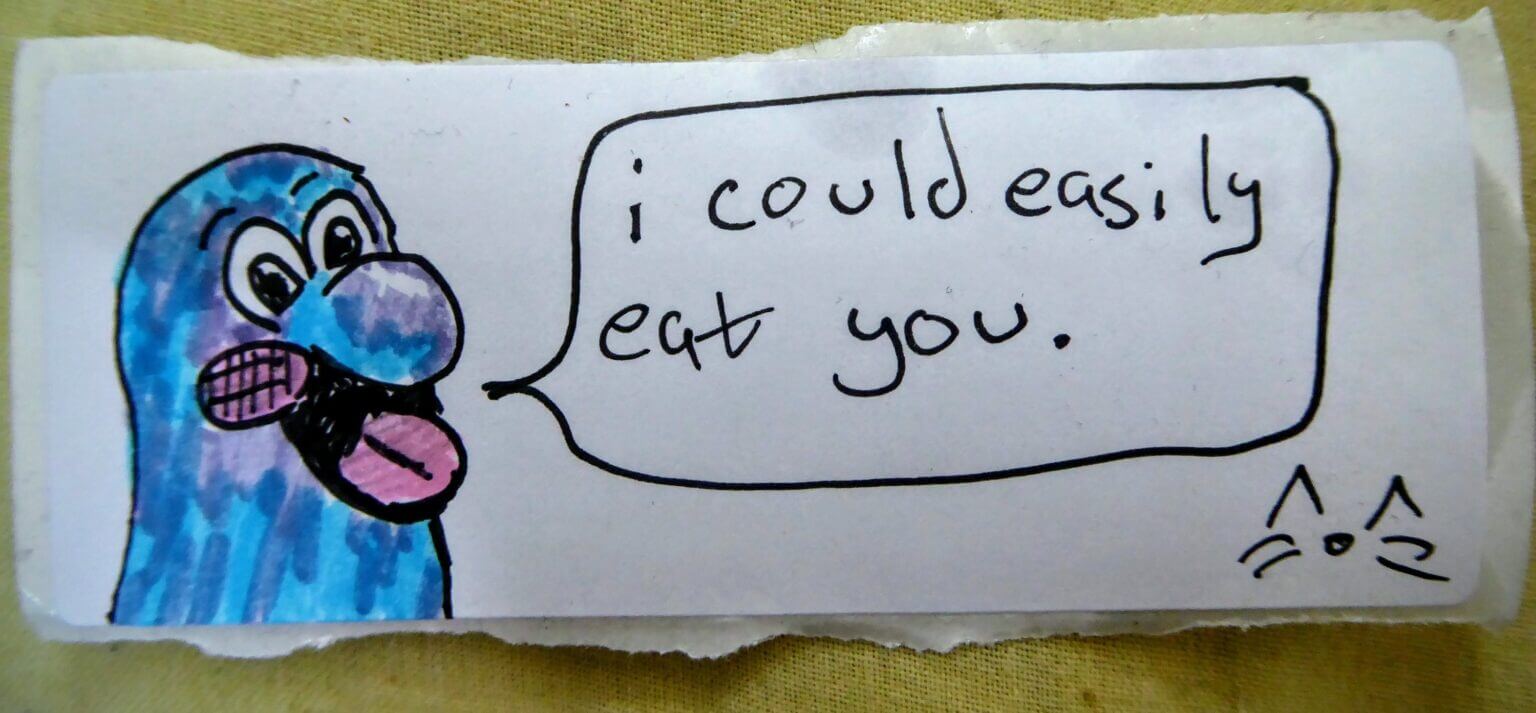 i could easily
eat you.